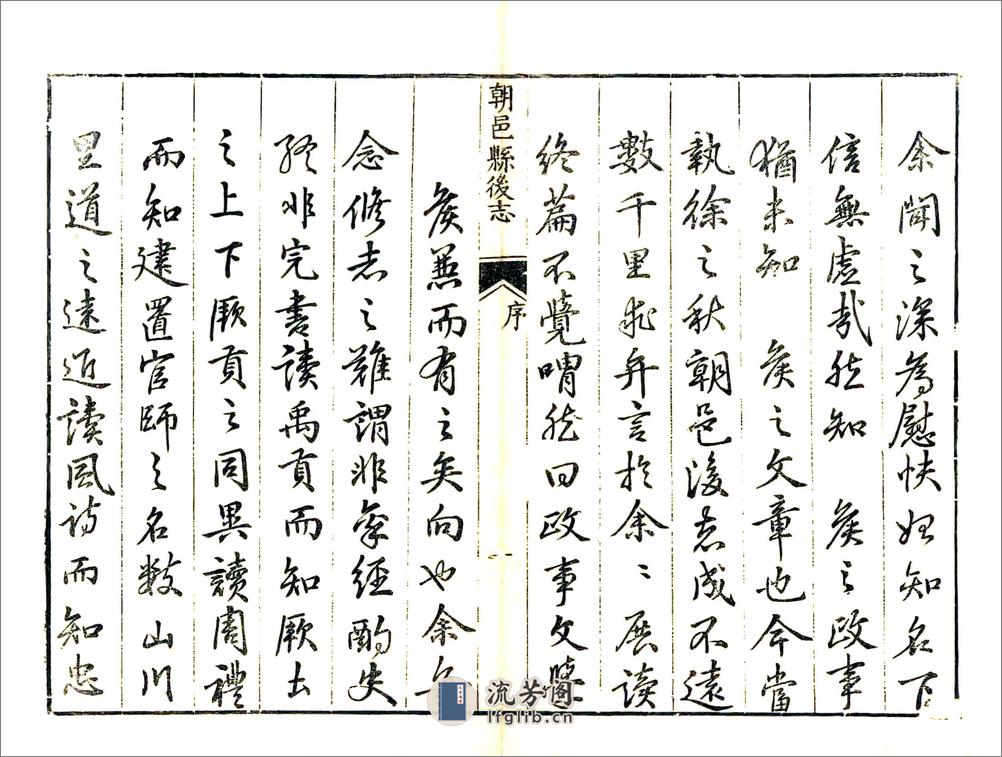 余聞之深為慰快始知名下
信無虛哉然知　侯之政事
猶未知　侯之文章也今當
執徐之秋朝邑後志成不遠
數千里求弁言於余〻展读
終篇不覺喟然曰政事文章
朝邑縣後志
序
一
侯蓋而有之矣向也余每
念修志之難謂非參經酌史
終非完書读禹貢而知厥土
之上下厥貢之同異讀周禮
而知建置官師之名數山川
里道之遠近读風诗而知忠
流芳阁
lfglib.cn